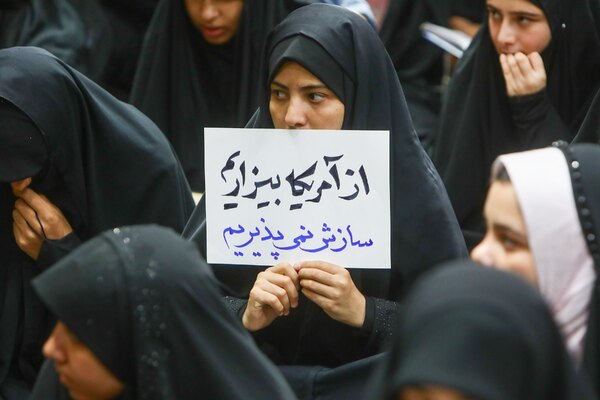 از آمریکا بیزاریم
سازش نمی پذیریم